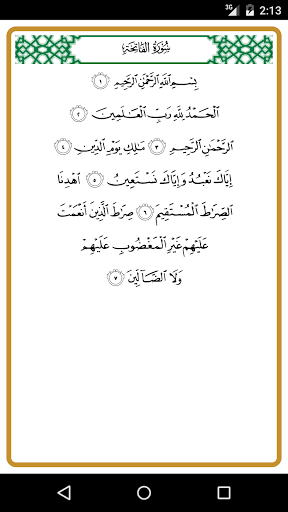 3G 2:13
سُورَةُ الفَاتِحَةِ
بِسۡمِ ٱللَّهِ ٱلرَّحۡمَٰنِ ٱلرَّحِيمِ ١
ٱلۡحَمۡدُ لِلَّهِ رَبِّ ٱلۡعَٰلَمِينَ ٢
ٱلرَّحۡمَٰنِ ٱلرَّحِيمِ ٣ مَٰلِكِ يَوۡمِ ٱلدِّينِ ٤
إِيَّاكَ نَعۡبُدُ وَإِيَّاكَ نَسۡتَعِينُ ٥ ٱهۡدِنَا
ٱلصِّرَٰطَ ٱلۡمُسۡتَقِيمَ ٦ صِرَٰطَ ٱلَّذِينَ أَنۡعَمۡتَ
عَلَيۡهِمۡ غَيۡرِ ٱلۡمَغۡضُوبِ عَلَيۡهِمۡ
وَلَا ٱلضَّآلِّينَ ٧